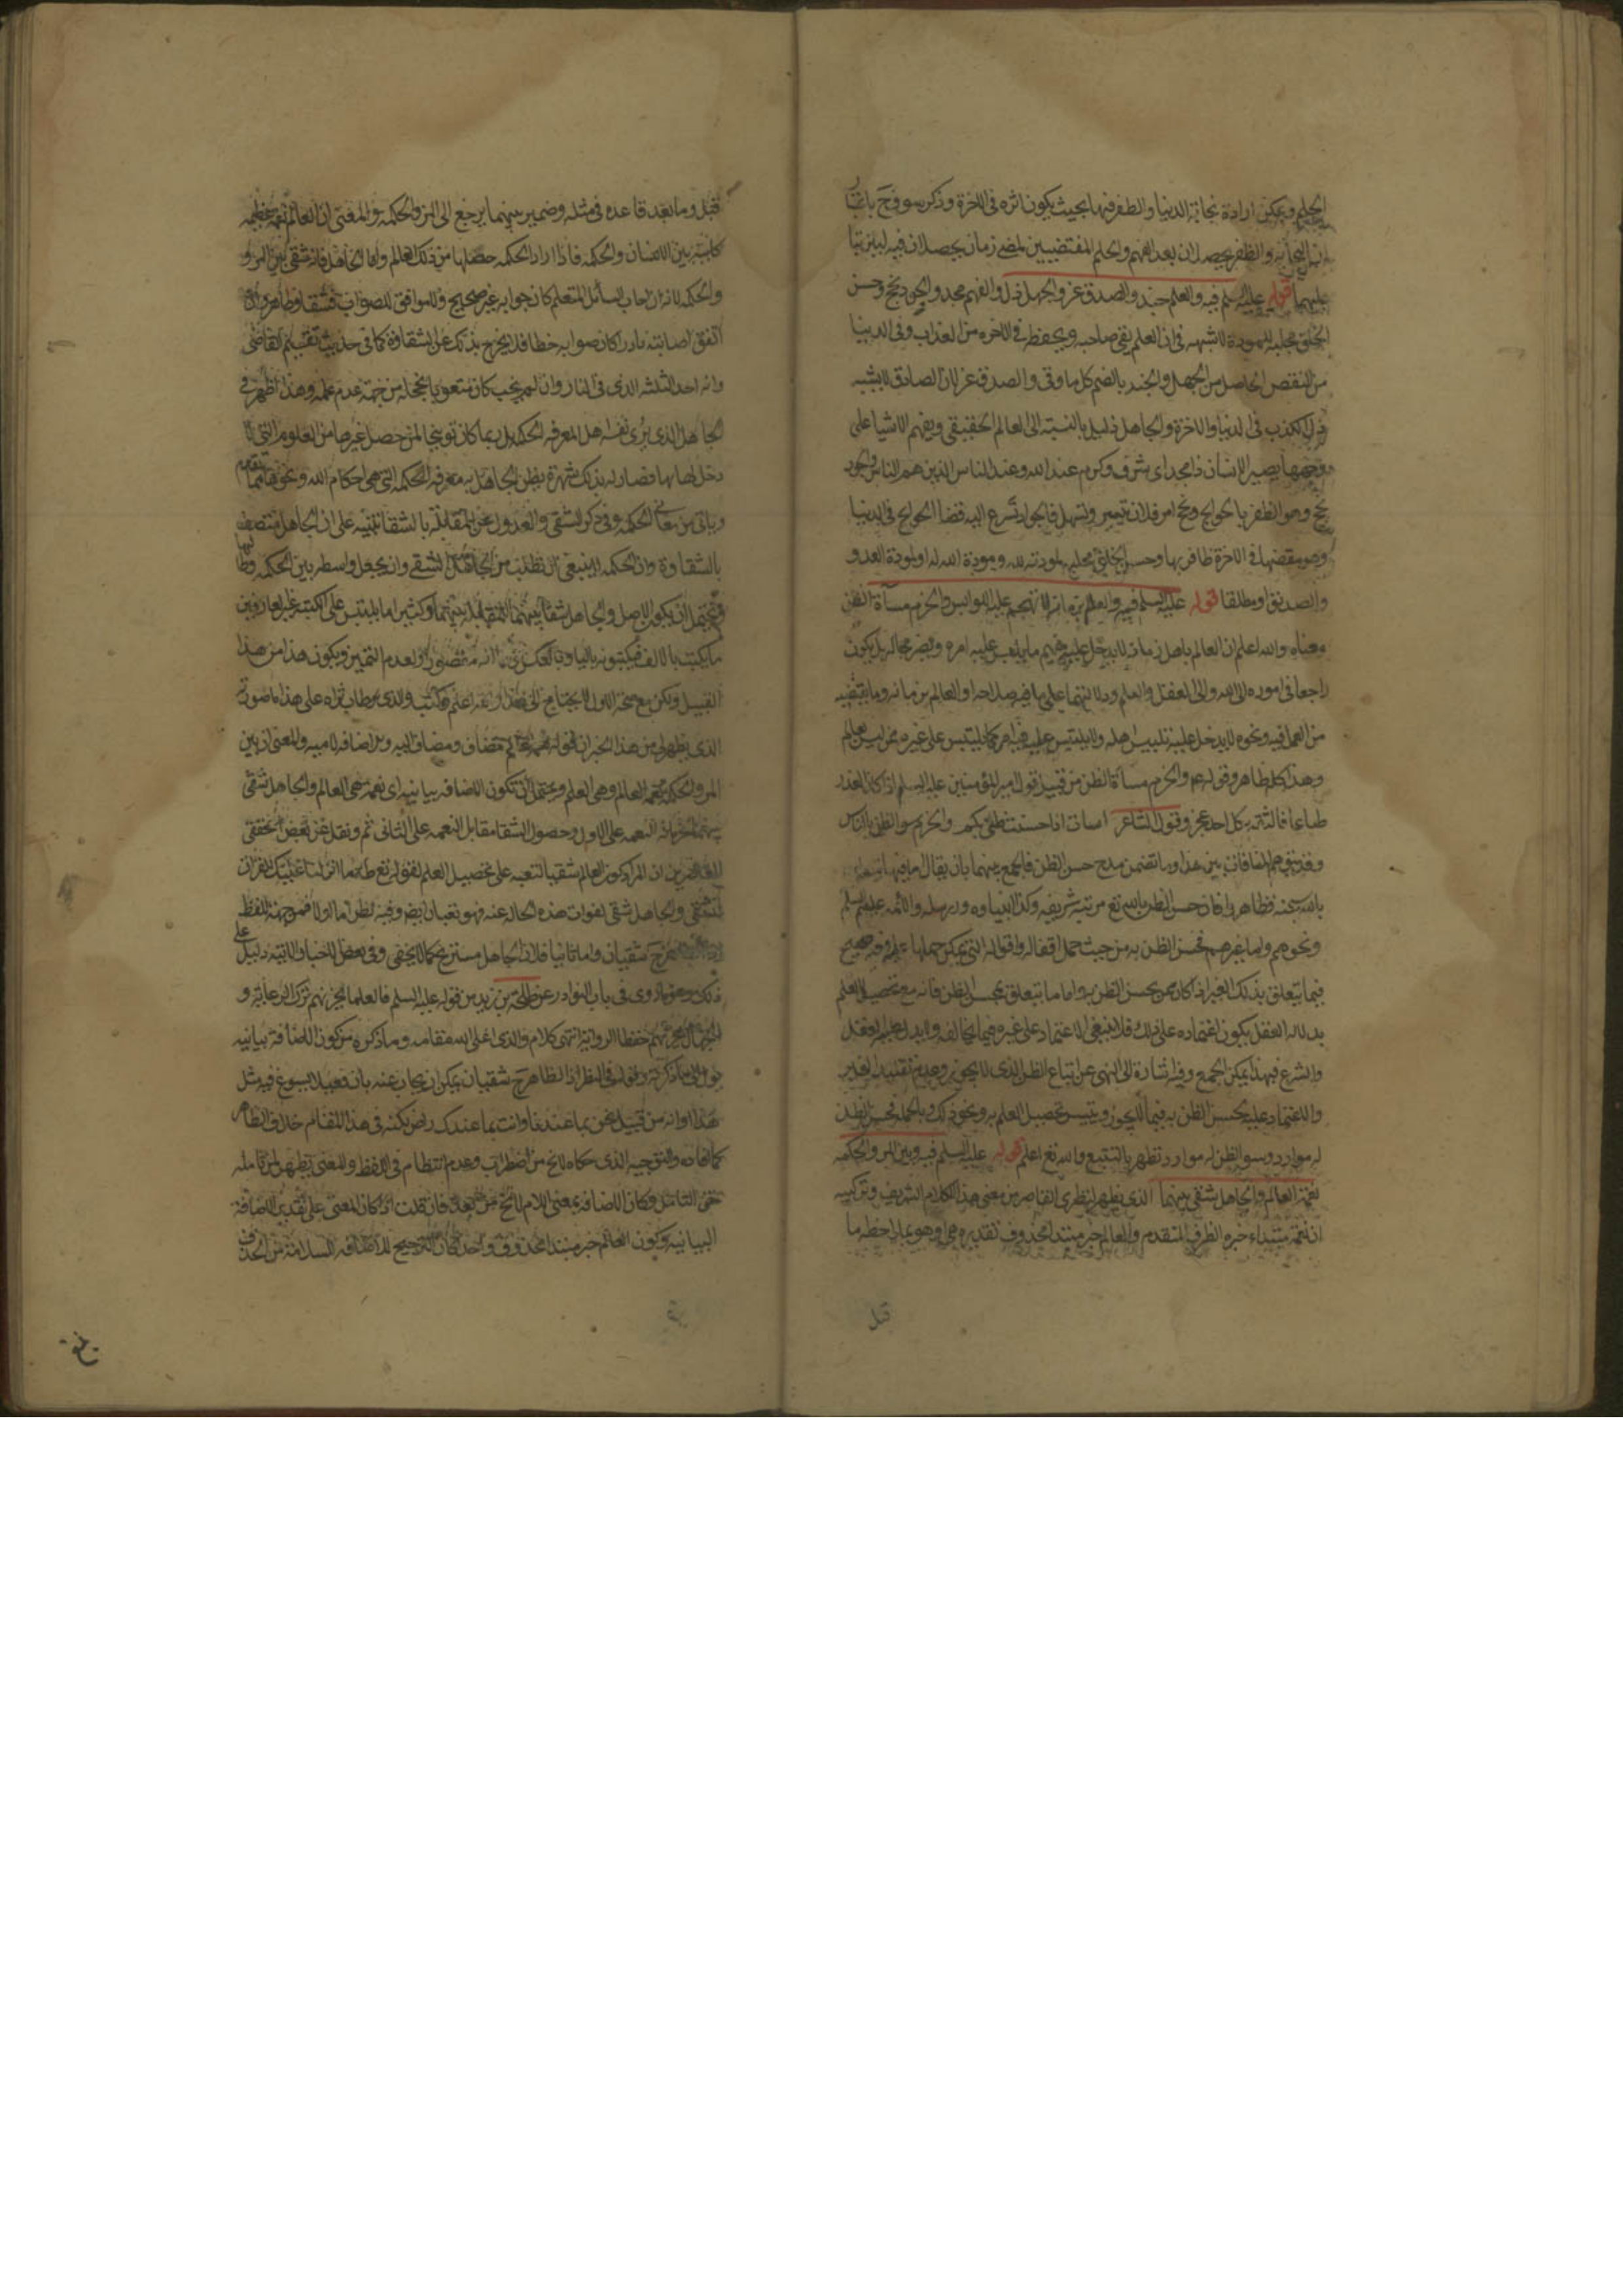 الحلم ويمكن ارادة نجابة الدنيا والظفر فيها بحيث يكون اثره في الاخرة وذكر سوف ح باعتبار
ان النجابة والظفر يحصلان بعد الفهم والحلم المقتضيين لمضي زمان يحصلان فيه
عليهما قوله عليه السلم فيه والعلم جنه والصدق عز والجهل ذل والفهم مجد والجود نجح وحسن
الخلق مجلبه للمودة لا شبهه في ان العلم يقي صاحبه ويحفظه في الاخره من العذاب وفي الدنيا
من النقص الحاصل من الجهل والجنه بالضم كل ما وقى والصدق عز لان الصادق لا يشينه
ذل الكذب في الدنيا والاخرة والجاهل ذليل بالنسبة الى العالم الحقيقي وبفهم الاشيا على
وجهها يصير الانسان ذا مجد اى شرف وكرم عند الله وعند الناس الذين هم الناس والجود
نجح وهو الظفر بالحوايج ونجح امر فلان تيسر وتسهل فالجواد تسرع اليه قضا الحوايج في الدنيا
وهو بقضيها في الاخرة ظافر بها وحسن الخلق مجلبه لمودته لله ومودة الله له او لمودة العدو
والصديق او مطلقا قوله عليه السلم فيه والعالم بزمانه لا تهجم عليه اللوابس والحزم مساءة الظن
معناه والله اعلم ان العالم باهل زمانه لا يدخل عليه فيهم ما يلبس عليه امره ويضر بحاله بل يكون
راجعا في اموره الى الله والى العقل والعلم ودلالتهما على ما فيه صلاحه او العالم بزمانه وما يقتضيه
من العمل فيه ونحوه لا يدخل عليه تلبيس اهله ولا يلتبس عليه امر كما يلتبس على غيره ممن ليس بعالم
وهذا كله ظاهر وقوله عم والحزم مساءة الظن من قبيل قول امير المؤمنين عليه السلم اذا كان الغدر
طباعا فالثقه بكل احد عجز وقول الشاعر اسات اذا حسنت ظني بكم والحزم سو الظن بالناس
وقد يتوهم المنافاة بين هذا وما تضمن مدح حسن الظن فالجمع بينهما بان يقال ما فيها
بالله سبحنه فظاهر فان حسن الظن بالله تع مرتبه شريفه وكذا انبياوه ورسله والائمه عليهم السلم
ونحوهم واما غيرهم فحسن الظن به من حيث حمل افعاله واقواله التي يمكن حملها على وجه صحيح
فيما يتعلق بذلك الغير اذ كان ممن يحسن الظن به واما ما يتعلق بمحسن الظن فانه مع تحصيل العلم
بدلاله العقل يكون اعتماده على ذلك فلا ينبغي الاعتماد على غيره فيما يخالفه ولا يدل عليه العقل
والشرع فبهذا يمكن الجمع وفيه اشارة الى النهي عن اتباع الظن الذى لا يجوز وعدم تقليد الغير
والاعتماد عليه بحسن الظن به فيما لا يجوز ويتيسر تحصيل العلم به ونحو ذلك وبالجمله فحسن الظن
له موارد وسو الظن له موارد تظهر بالتتبع والله تع اعلم قوله عليه السلم فيه وبين المرء والحكمه
نعمة العالم والجاهل شقي بينهما الذى يظهر لنظري القاصر من معنى هذا الكلام الشريف وتركيبه
ان نعمة مبتداء خبره الظرف المتقدم والعالم خبر مبتدا محذوف تقديره هي او هو بملاحظه ما
قبل
قبل وما بعد قاعده في مثله وضمير بينهما يرجع الى المرء والحكمه والمعنى ان العالم نعمه عظيمه
كاينه بين الانسان والحكمه فاذا اراد الحكمه حصلها من ذلك العالم واما الجاهل فانه شقي بين المرء
والحكمه لانه ان اجاب السائل المتعلم كان جوابه غير صحيح ولا موافق للصواب فشقاوه ظاهر وان
اتفق اصابته نادرا كان صوابه خطا فلا يخرج بذلك عن الشقاوة كما في حديث تقسيم القاضي
وانه احد الثلثه الذى في النار وان لم يجب كان متعوبا بخجله من جهة عدم علمه وهذا اظهر في
الجاهل الذى يرى نفسه اهل المعرفه الحكمه بل ربما كان توبيخا لمن حصل غيرها من العلوم التي لا
دخل لها بها وصار له بذلك شهرة يظن الجاهل به معرفه الحكمه التي هي احكام الله ونحوها مما تقدم
وياتي من معاني الحكمه وفي ذكر الشقي والعدول عن المقابلة بالشقا تنبيه على ان الجاهل متصف
بالشقاوة وان الحكمه لا ينبغي ان تطلب من الجاهل الشقي وان يجعل واسطه بين الحكمه وطالبها
ويحتمل ان يكون الاصل والجاهل شقا بينهما وكثيرا ما يلتبس على الكتبه غير العارفين
ما يكتب بالالف فيكتبونه باليا وبالعكس او لعدم التمييز ويكون هذا من هذا
القبيل ولكن مع صحة الاول لا يحتاج الى هذا والله اعلم وكتب والدى طاب ثراه على هذا ما صورته
الذى يظهر لي من هذا الخبر ان قوله نعمة العالم مضاف ومضاف اليه والاضافه لاميه والمعنى ان بين
المرء والحكمه نعمة العالم وهي العلم ويحتمل ان تكون الاضافه بيانيه اى نعمه هي العالم والجاهل شقي
بينهما لحرمانه النعمه على الاول وحصول الشقا مقابل النعمه على الثاني ثم ونقل عن بعض محققي
المعاصرين ان المراد كون العالم شقيا لتعبه على تحصيل العلم لقوله تع طه ما انزلنا عليك القرآن
لتشقى والجاهل شقي لفوات هذه الحاله عنه فهو تعبان ايضا وفيه نظر اما اولا فمن جهة اللفظ
اذ الظاهر ح شقيان واما ثانيا فلان الجاهل مستريح كما لا يخفى وفي بعض الاخبار الاتية دليل على
ذلك وهو ما روى في باب النوادر عن طلحة بن زيد من قوله عليه السلم فالعلما يحزنهم ترك الرعاية و
الجهال يحزنهم حفظ الرواية انتهى كلام والدى اعلى الله مقامه وما ذكره من كون الاضافة بيانيه
يؤل الى ما ذكرته وقوله في النظر اذ الظاهر ح شقيان يمكن ان يجاب عنه بان فعيلا يسوغ فيه مثل
هذا او انه من قبيل نحن بما عندنا وانت بما عندك راض لكنه في هذا المقام خلاف الظاهر
كما افاده والتوجيه الذى حكاه لا يخ من اضطراب وعدم انتظام في اللفظ والمعنى يظهر لمن تامله
حق التامل وكان الاضافه بمعنى اللام لا يخ من بعد فان قلت اذا كان المعنى على تقدير الاضافة
البيانيه وكون العالم خبر مبتدا محذوف واحد كان الترجيح للاضافه للسلامة من الحذف